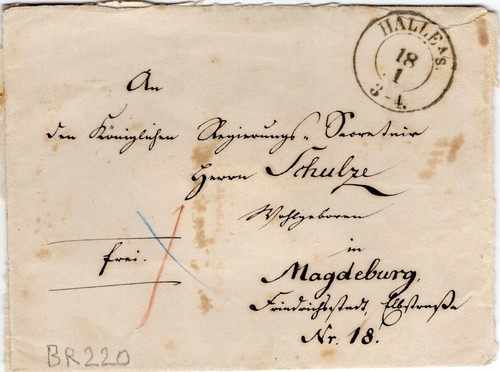 HALLE A/S.
18
1
3-4.
An
den Königlichen Regierungs-Secretair
Herrn Schulze
Wohlgeboren
in
frei.
Magdeburg.
Friedrichsstadt, Elbstraße
Nr. 18.
BR220